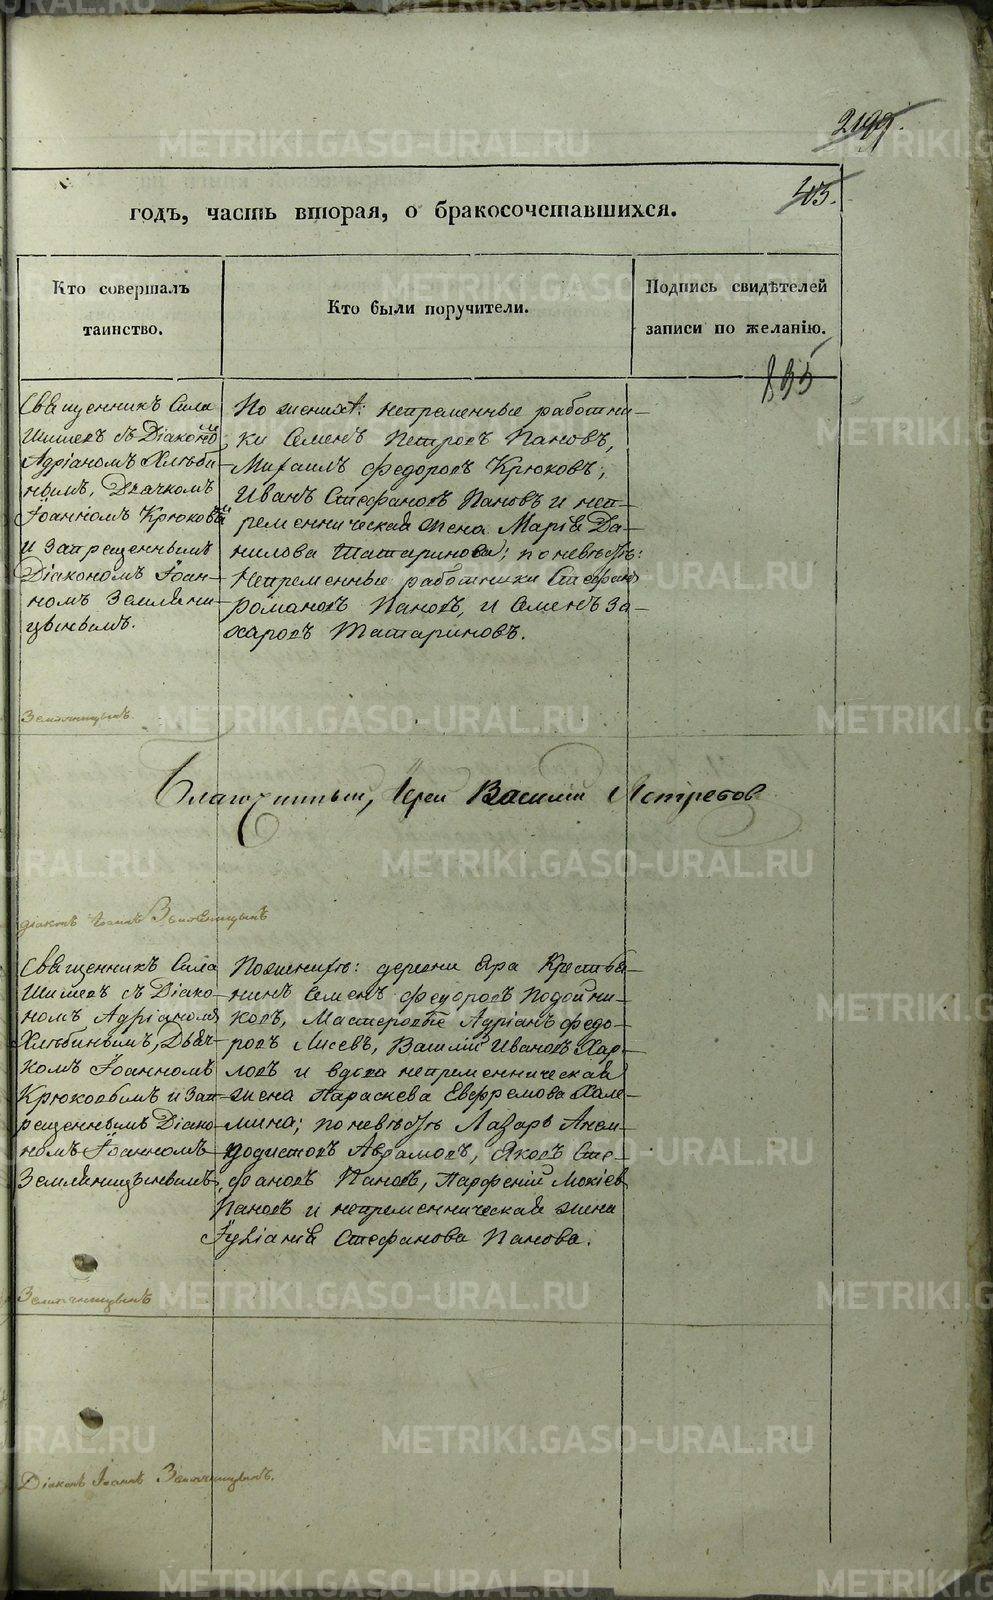 2199.
403.
годъ, часть вторая, о бракосочетавшихся.
Кто совершалъ
таинство.
Кто были поручители.
Подпись свидѣтелей
записи по желанію.
895
Священникъ Сила
Шишевъ съ Діакономъ
Адріаномъ Хлѣби-
нымъ, Дьячкомъ
Іоанномъ Крюковымъ
и запрещеннымъ
Діакономъ Іоан-
номъ Земляни-
цынымъ.
По женихѣ: непременные работни-
ки Семенъ Петровъ Пановъ,
Михаилъ Федоровъ Крюковъ,
Иванъ Стефановъ Пановъ и неп-
ременническая жена Марія Да-
нилова Татаринова; по невѣстѣ:
непременные работники Стефанъ
Романовъ Пановъ, и Семенъ За-
харовъ Татариновъ.
Земляницынъ.
Благочинный, Іерей Василій Ястребов
діаконъ Іоаннъ Земляницынъ
Священникъ Сила
Шишевъ съ Діако-
номъ Адріаномъ
Хлѣбинымъ, Дьяч-
комъ Іоанномъ
Крюковымъ и зап-
рещеннымъ Діако-
номъ Іоанномъ
Земляницынымъ,
По женихѣ: деревни Яра Крестья-
нинъ Семенъ Федоровъ Подойни-
ковъ, Мастеровые Адріанъ Федо-
ровъ Лисевъ, Василій Ивановъ Хар-
ловъ и вдова непременническая
жена Параскева Евфремова Хале-
мина; по невѣстѣ Лазарь Анем-
подистовъ Аврамовъ, Яковъ Сте-
фановъ Пановъ, Парфеній Мокіевъ
Пановъ и непременническая жена
Іуліанія Стефанова Панова.
Земляницынъ
Діаконъ Іоаннъ Земляницынъ.
METRIKI.GASO-URAL.RU